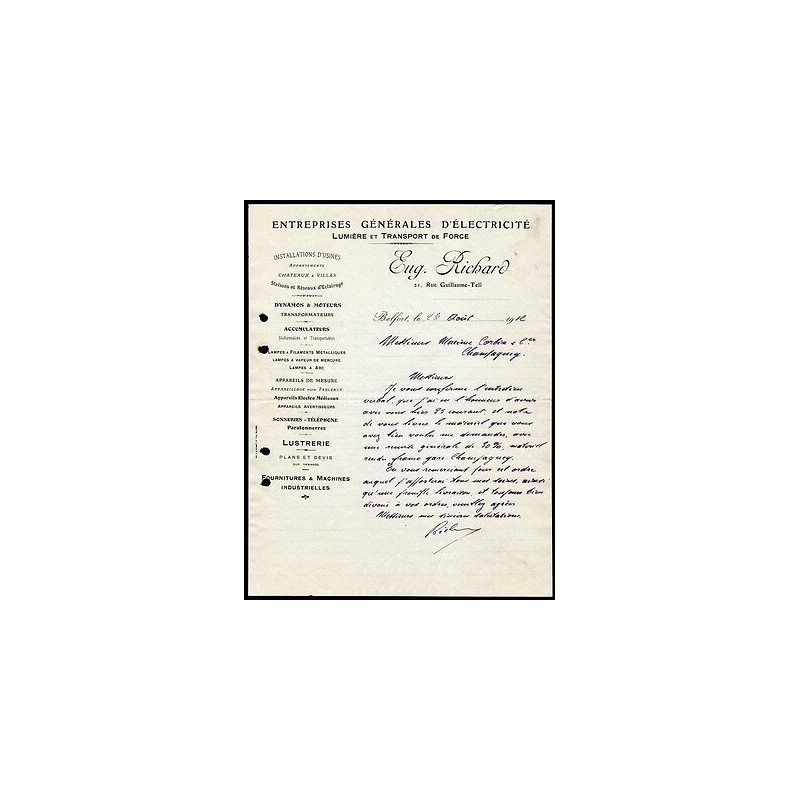 ENTREPRISES GÉNÉRALES D'ÉLECTRICITÉ
LUMIÈRE ET TRANSPORT DE FORCE
INSTALLATIONS D'USINES
APPARTEMENTS
CHATEAUX & VILLAS
Stations et Réseaux d'Eclairage
DYNAMOS & MOTEURS
TRANSFORMATEURS
ACCUMULATEURS
Stationnaires et Transportables
LAMPES A FILAMENTS MÉTALLIQUES
LAMPES A VAPEUR DE MERCURE
LAMPES A ARC
APPAREILS DE MESURE
APPAREILLAGE POUR TABLEAUX
Appareils Electro Médicaux
APPAREILS AVERTISSEURS
SONNERIES - TÉLÉPHONE
Paratonnerres
LUSTRERIE
PLANS ET DEVIS
SUR DEMANDE
FOURNITURES & MACHINES
INDUSTRIELLES
Eug. Richard
21, Rue Guillaume-Tell
Belfort, le 26 Août 1912
Messieurs Maxime Corbin & Cie
Champagney.
Messieurs
Je vous confirme l'entretien
verbal, que j'ai eu l'honneur d'avoir
avec vous hier 25 courant, et note
de vous livrer le matériel que vous
avez bien voulu me demander, avec
une remise générale de 20%, matériel
rendu franco gare Champagney.
En vous remerciant pour cet ordre
auquel j'apporterai tous mes soins, ainsi
qu'une prompte livraison, et toujours bien
dévoué à vos ordres, veuillez agréer
Messieurs mes sincères salutations.